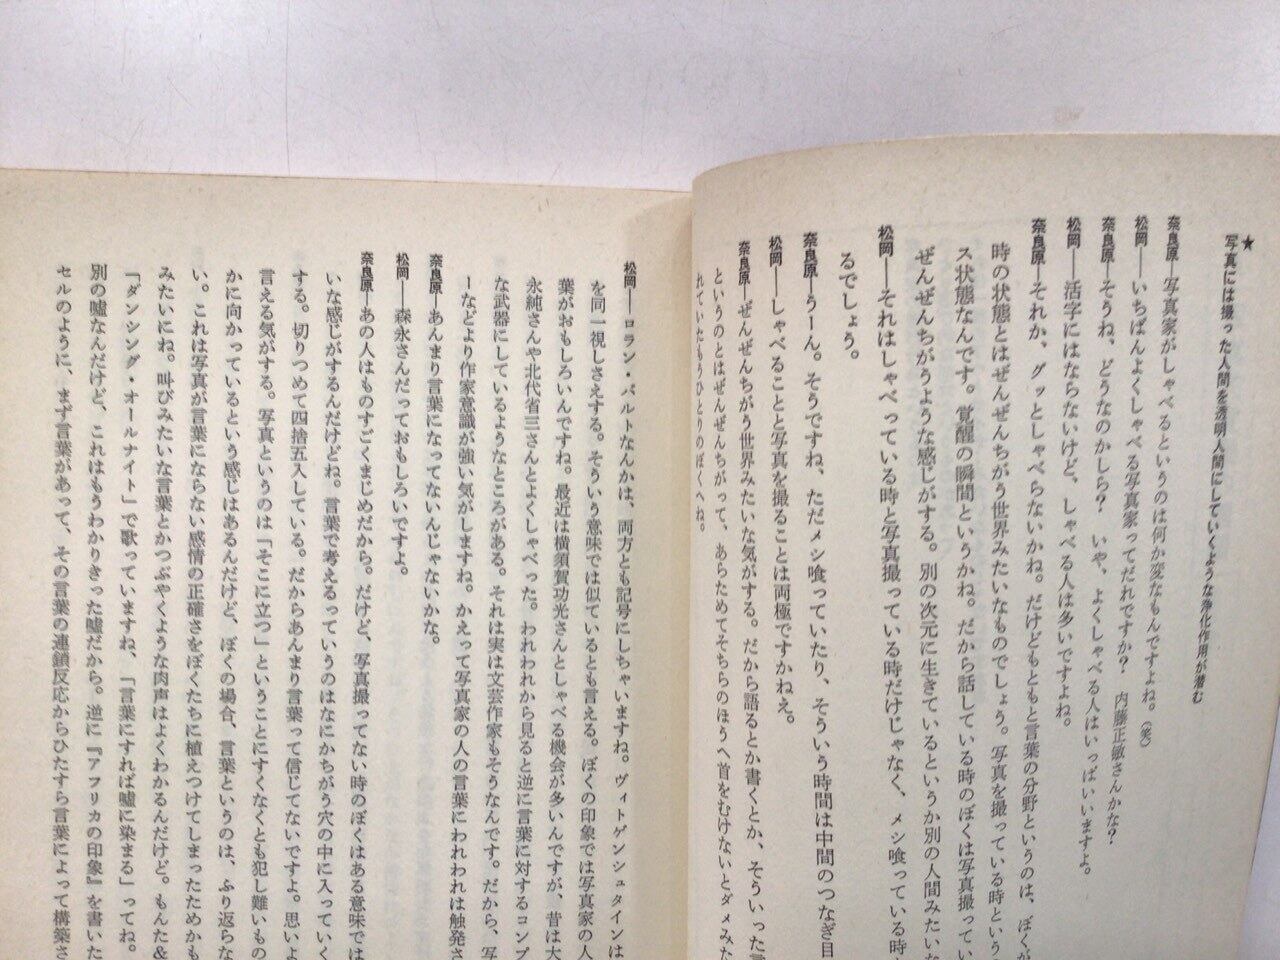 ★
写真には撮った人間を透明人間にしていくような浄化作用が潜む
奈良原―写真家がしゃべるというのは何か変なもんですよね。(笑)
松岡――いちばんよくしゃべる写真家ってだれですか？　内藤正敏さんかな？
奈良原―そうね、どうなのかしら？　いや、よくしゃべる人はいっぱいいますよ。
松岡――活字にはならないけど、しゃべる人は多いですよね。
奈良原―それか、グッとしゃべらないかね。だけどもともと言葉の分野というのは、ぼくが
時の状態とはぜんぜんちがう世界みたいなものでしょう。写真を撮っている時という
ス状態なんです。覚醒の瞬間というかね。だから話している時のぼくは写真撮ってい
ぜんぜんちがうような感じがする。別の次元に生きているというか別の人間みたいな
松岡――それはしゃべっている時と写真撮っている時だけじゃなく、メシ喰っている時
るでしょう。
奈良原―うーん。そうですね、ただメシ喰っていたり、そういう時間は中間のつなぎ目
松岡――しゃべることと写真を撮ることは両極ですかねえ。
奈良原―ぜんぜんちがう世界みたいな気がする。だから語るとか書くとか、そういった言
というのとはぜんぜんちがって、あらためてそちらのほうへ首をむけないとダメみた
れていたもうひとりのぼくへね。
松岡――ロラン・バルトなんかは、両方とも記号にしちゃいますね。ヴィトゲンシュタインは
を同一視しさえする。そういう意味では似ているとも言える。ぼくの印象では写真家の人
葉がおもしろいんですね。最近は横須賀功光さんとしゃべる機会が多いんですが、昔は大
永純さんや北代省三さんとよくしゃべった。われわれから見ると逆に言葉に対するコンプ
な武器にしているようなところがある。それは実は文芸作家もそうなんです。だから、写
ーなどより作家意識が強い気がしますね。かえって写真家の人の言葉にわれわれは触発さ
奈良原―あんまり言葉になってないんじゃないかな。
松岡――森永さんだっておもしろいですよ。
奈良原―あの人はものすごくまじめだから。だけど、写真撮ってない時のぼくはある意味では
いな感じがするんだけどね。言葉で考えるっていうのはなにかちがう穴の中に入っていく
する。切りつめて四捨五入している。だからあんまり言葉って信じてないですよ。思いよ
言える気がする。写真というのは「そこに立つ」ということにすくなくとも犯し難いもの
かに向かっているという感じはあるんだけど、ぼくの場合、言葉というのは、ふり返らな
い。これは写真が言葉にならない感情の正確さをぼくたちに植えつけてしまったためかも
みたいにね。叫びみたいな言葉とかつぶやくような肉声はよくわかるんだけど。もんた&
「ダンシング・オールナイト」で歌っていますね、「言葉にすれば嘘に染まる」ってね。
別の嘘なんだけど、これはもうわかりきった嘘だから。逆に『アフリカの印象』を書いた
セルのように、まず言葉があって、その言葉の連鎖反応からひたすら言葉によって構築さ